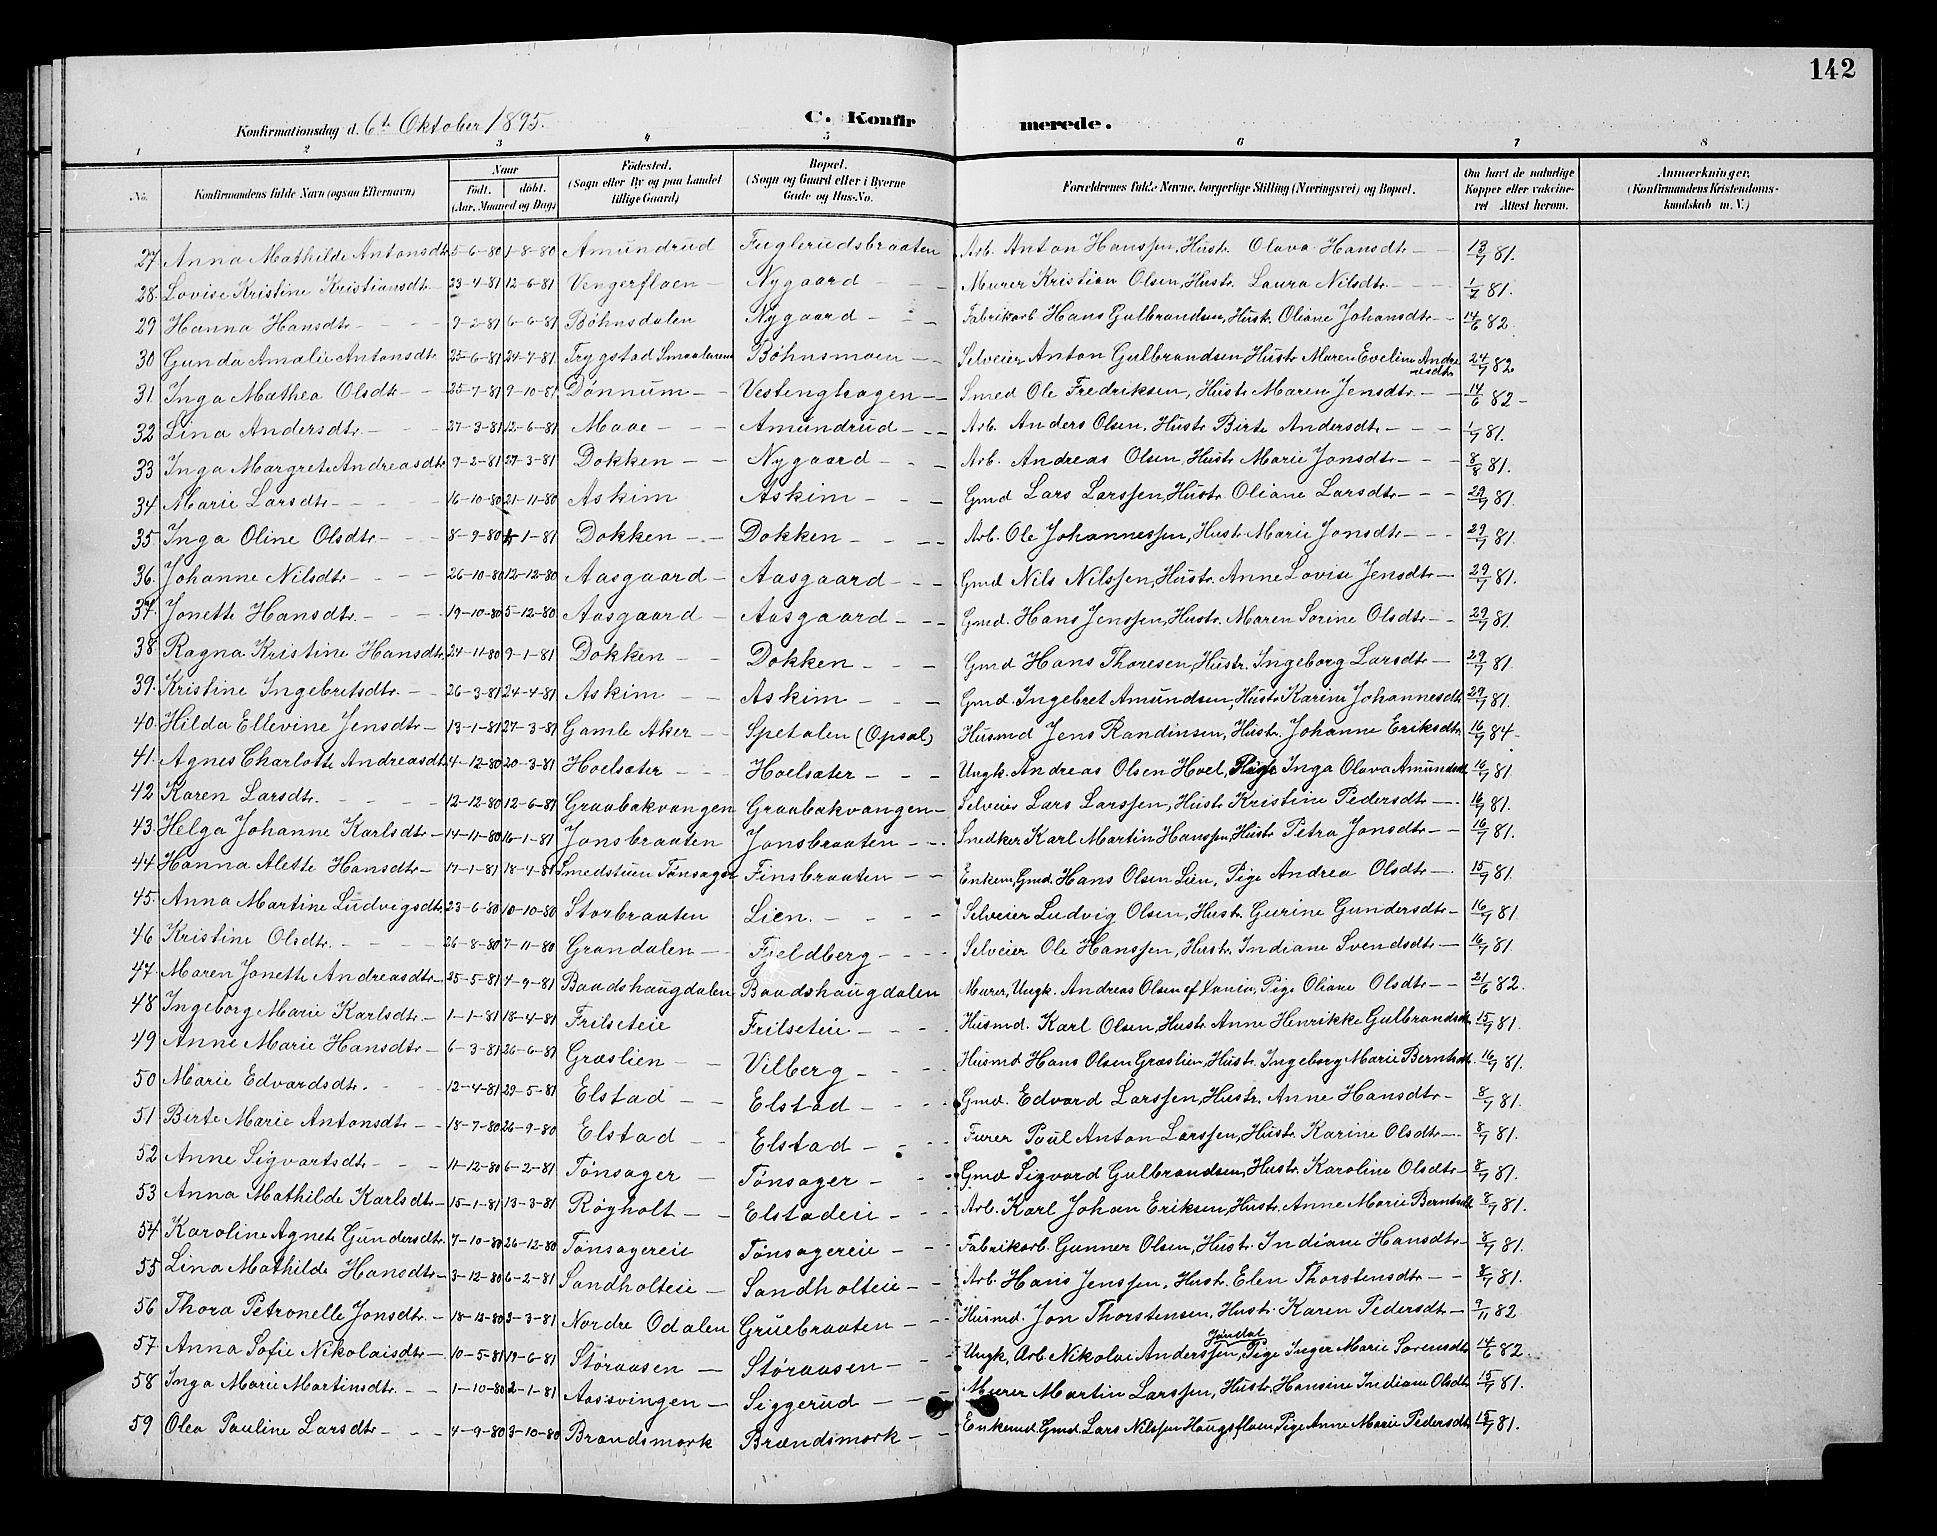 142
Konfirmationsdag d. 6te Oktober 1895.
C. Konfirmerede.
1 2 3 4 5 6 7 8
No. | Konfirmandens fulde Navn (ogsaa Efternavn) | Naar født. døbt. (Aar, Maaned og Dag) | Fødested. (Sogn eller By og paa Landet tillige Gaard) | Bopæl. (Sogn og Gaard eller i Byerne Gade og Hus-No. | Forældrenes fulde Navne, borgerlige Stilling (Næringsvei) og Bopæl. | Om havt de naturlige Kopper eller vaccineret Attest herom. | Anmærkninger. (Konfirmandens Kristendomskundskab m. V.)
27 Anna Mathilde Antonsdtr. 5-6-80 1-8-80 Amundrud Fuglerudsbraaten Arb. Anton Hanssen, Hustr. Olava Hansdtr 13/7 81.
28. Lovise Kristine Kristiansdtr 23-4-81 12-6-81 Vengerfloen Nygaard Murer Kristian Olsen, Hustr. Laura Nilsdtr. 1/7 81.
29 Hanna Hansdtr 9-2-81 6-6-81 Bøhnsdalen Nygaard Fabrikarb. Hans Gulbrandsen, Hustr. Oliane Johansdtr 14/6 82.
30 Gunda Amalie Antonsdtr 25-6-81 24-7-81 Trygstad Smaalenene Bøhnsmoen Selveier Anton Gulbrandsen Hustr Maren Eveline Andreasdtr 24/7 82
31. Inga Mathea Olsdtr 25-7-81 9-10-81 Dønnum Vestenghagen Smed Ole Fredriksen, Hustr Maren Jensdtr. 14/6 82
32 Lina Andersdtr 27-3-81 12-6-81 Moae Amundrud Arb. Anders Olsen, Hustr Birte Andersdtr 1/7 81.
33 Inga Margrete Andreasdtr 9-2-81 27-3-81 Dokken Nygaard Arb. Andreas Olsen, Hustr Marie Jonsdtr 8/8 81.
34 Marie Larsdtr 16-10-80 21-11-80 Askim Askim Gmd Lars Larssen, Hustr Oliane Larsdtr 29/7 81.
35 Inga Oline Olsdtr 8-9-80 1-81 Dokken Dokken Arb. Ole Johannessen, Hustr Marie Jonsdtr 29/7 81.
36. Johanne Nilsdtr 26-10-80 12-12-80 Aasgaard Aasgaard Gmd Nils Nilssen, Hustr. Anne Lovise Jensdtr 29/7 81.
37. Jonette Hansdtr. 19-10-80 5-12-80 Aasgaard Aasgaard Gmd. Hans Jenssen, Hustr. Maren Sorine Olsdtr 29/7 81.
38. Ragna Kristine Hansdtr. 24-11-80 9-1-81 Dokken Dokken Gmd Hans Thoresen, Hustr. Ingeborg Larsdtr 29/7 81.
39. Kristine Ingebretsdtr. 26-3-81 24-4-81 Askim Askim Gmd. Ingebret Amundsen, Hustr Karine Johannesdtr 29/7 81.
40. Hilda Ellevine Jensdtr 13-1-81 27-3-81 Gamle Aker Spetalen (Opsal) Husmd Jens Randinsen, Hustr. Johanne Eriksdtr 16/7 84
41. Agnes Charlotte Andreasdtr 4-12-80 20-3-81 Hoelsæter Hoelsæter Ungk. Andreas Olsen Hoel, Pige Inga Olava Amundsdtr 16/7 81.
42 Karen Larsdtr. 12-12-80 12-6-81 Graabakvangen Graabakvangen Selveier Lars Larssen, Hustr Kristine Pedersdtr 16/7 81.
43. Helga Johanne Karlsdtr 14-11-80 16-1-81 Jonsbraaten Jonsbraaten Snedker Karl Martin Hanssen, Hustr Petra Jonsdtr 16/7 81.
44 Hanna Alette Hansdtr 17-1-81 18-4-81 Smedstuen Tønsager Finsbraaten Enkem, Gmd. Hans Olsen Lien, Pige Andrea Olsdtr 15/7 81.
45. Anna Martine Ludvigsdtr 23-6-80 10-10-80 Storbraaten Lien. Selveier Ludvig Olsen, Hustr. Gurine Gundersdtr 16/7 81.
46 Kristine Olsdtr. 26-8-80 7-11-80 Grandalen Fjeldberg Selveier Ole Hanssen, Hustr. Indiane Svendsdtr 16/7 81
47. Maren Jonette Andreasdtr 25-5-81 4-9-81 Baadshaugdalen Baadshaugdalen Murer, Ungk. Andreas Olsen, Pige Oliane Olsdtr 21/6 82.
48 Ingeborg Marie Karlsdtr. 1-1-81 18-4-81 Frilseteie Frilseteie Husmd. Karl Olsen, Hustr. Anne Henrikke Gulbrandsdtr 15/7 81.
49 Anne Marie Hansdtr 6-3-81 26-6-81 Græslien Vilberg Husmd Hans Olsen Græslien, Hustr. Ingeborg Marie Berntsdtr 16/7 81.
50 Marie Edvardsdtr. 12-4-81 29-5-81 Elstad Elstad Gmd. Edvard Larssen, Hustr. Anne Hansdtr 8/7 81.
51 Birte Marie Antonsdtr 18-7-80 26-9-80 Elstad Elstad Furer Paul Anton Larssen, Hustr. Karine Olsdtr 8/7 81.
52 Anne Sigvartsdtr 11-12-80 6-2-81 Tønsager Tønsager Gmd Sigvard Gulbrandsen, Hustr. Karoline Olsdtr 8/7 81.
53 Anna Mathilde Karlsdtr 15-1-81 13-3-81 Røgholt Elstadeie Arb. Karl Johan Eriksen, Hustr. Anne Marie Berntsdtr 8/7 81.
54 Karoline Agnete Gundersdtr. 7-10-80 26-12-80 Tønsagereie Tønsagereie Fabrikarb. Gunner Olsen, Hustr. Indiane Hansdtr 8/7 81.
55 Lina Mathilde Hansdtr 3-12-80 6-2-81 Sandholteie Sandholteie Arb. Hans Jenssen, Hustr. Elen Thorstensdtr 8/7 81.
56 Thora Petronelle Jonsdtr. 18-12-80 3-3-81 Nordre Odalen Gruebraaten Husmd. Jon Thorstensen, Hustr. Karen Pedersdtr 9/11 82
57. Anna Sofie Nikolaisdtr 10-5-81 19-6-81 Støraasen Støraasen Ungk, Arb. Nikolai Anderssen Jøndal, Pige Inger Marie Sørensdtr 14/6 82.
58 Inga Marie Martinsdtr. 1-10-80 2-1-81 Aassvingen Siggerud Murer Martin Larssen, Hustr. Hansine Indiane Olsdtr 15/7 81.
59 Olea Pauline Larsdtr 4-9-80 3-10-80 Brandsmork Brændsmork Enkemd. Gmd. Lars Nilssen Haugsfloen, Pige Anne Marie Pedersdtr 15/7 81.